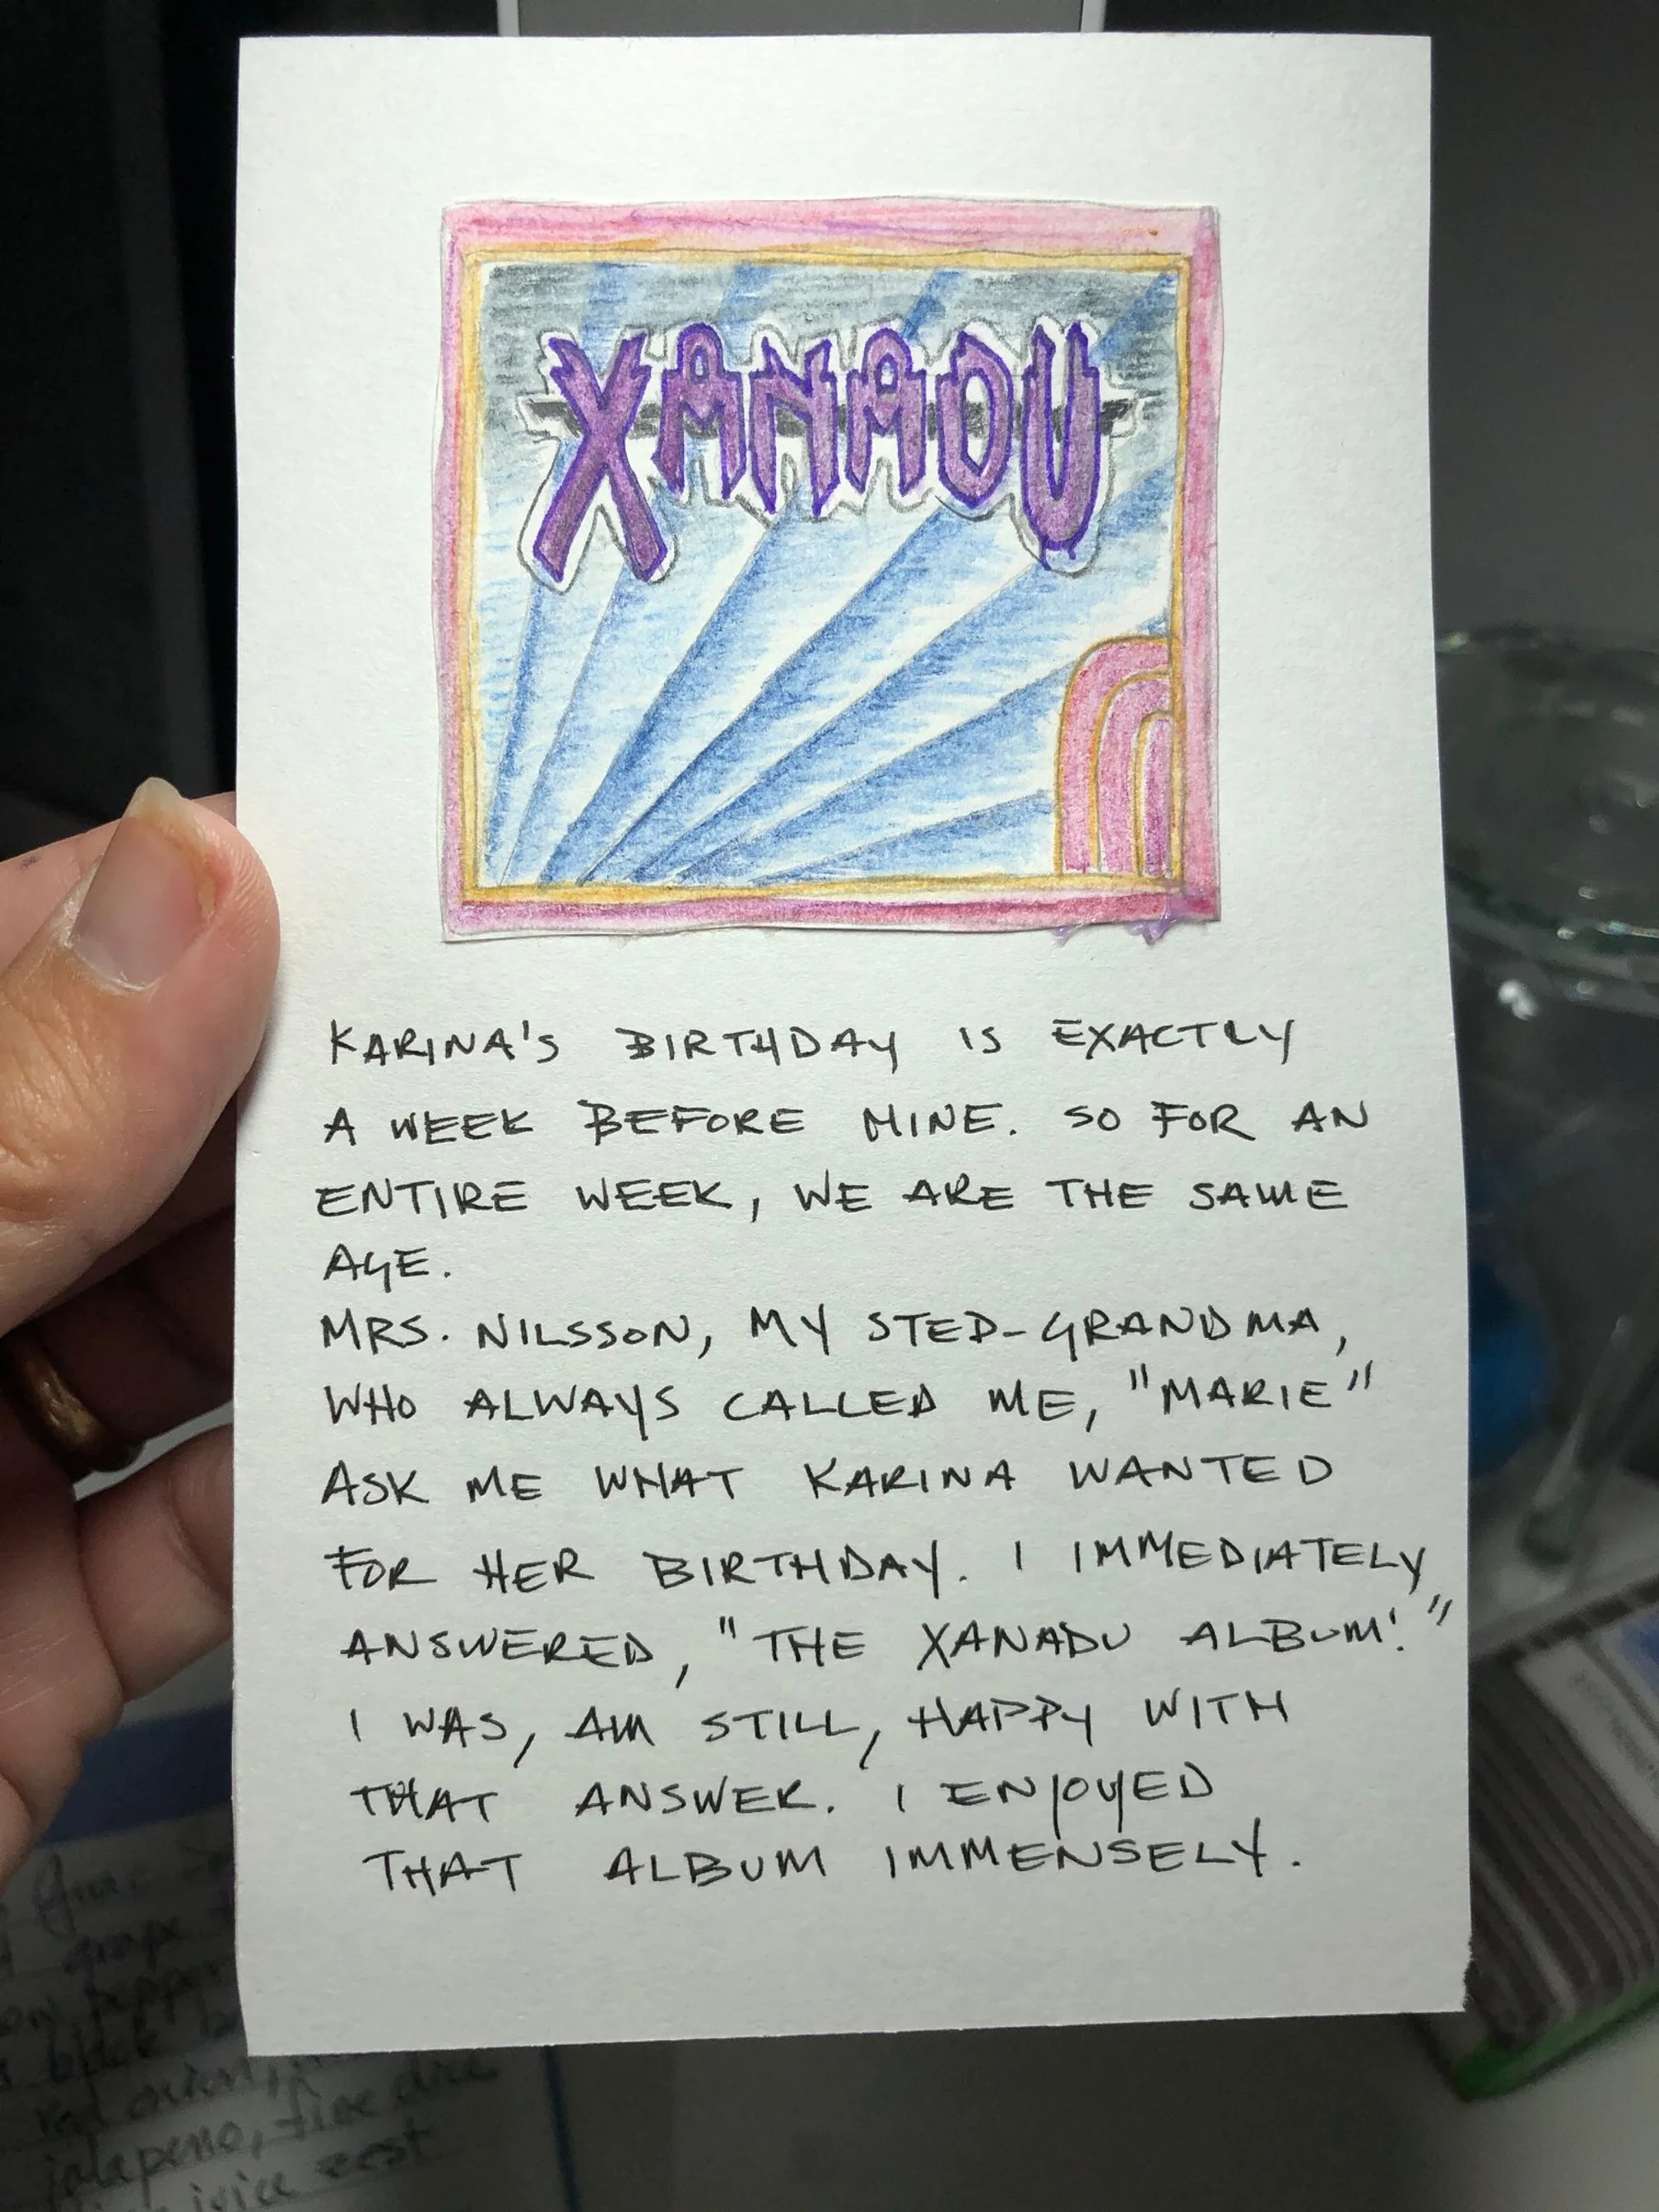 XANADU
KARINA'S BIRTHDAY IS EXACTLY
A WEEK BEFORE MINE. SO FOR AN
ENTIRE WEEK, WE ARE THE SAME
AGE.
MRS. NILSSON, MY STED-GRANDMA,
WHO ALWAYS CALLED ME, "MARIE"
ASK ME WHAT KARINA WANTED
FOR HER BIRTHDAY. I IMMEDIATELY
ANSWERED, "THE XANADU ALBUM!"
I WAS, AM STILL, HAPPY WITH
THAT ANSWER. I ENJOYED
THAT ALBUM IMMENSELY.
grape
pepper
black
red onion,
jalapeno, fine dice
juice zest